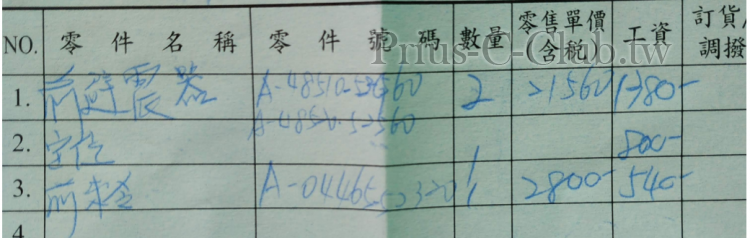 NO. 零件名稱 零件號碼 數量 零售單價(含稅) 工資 訂貨.調撥
Prius-C-Club.tw
1. 前避震器 A-48510-59560 2 21560 1380-
A-48520-52560
2. 定位 800-
3. 前來令 A-04465-52320 1 2800- 540-
4.